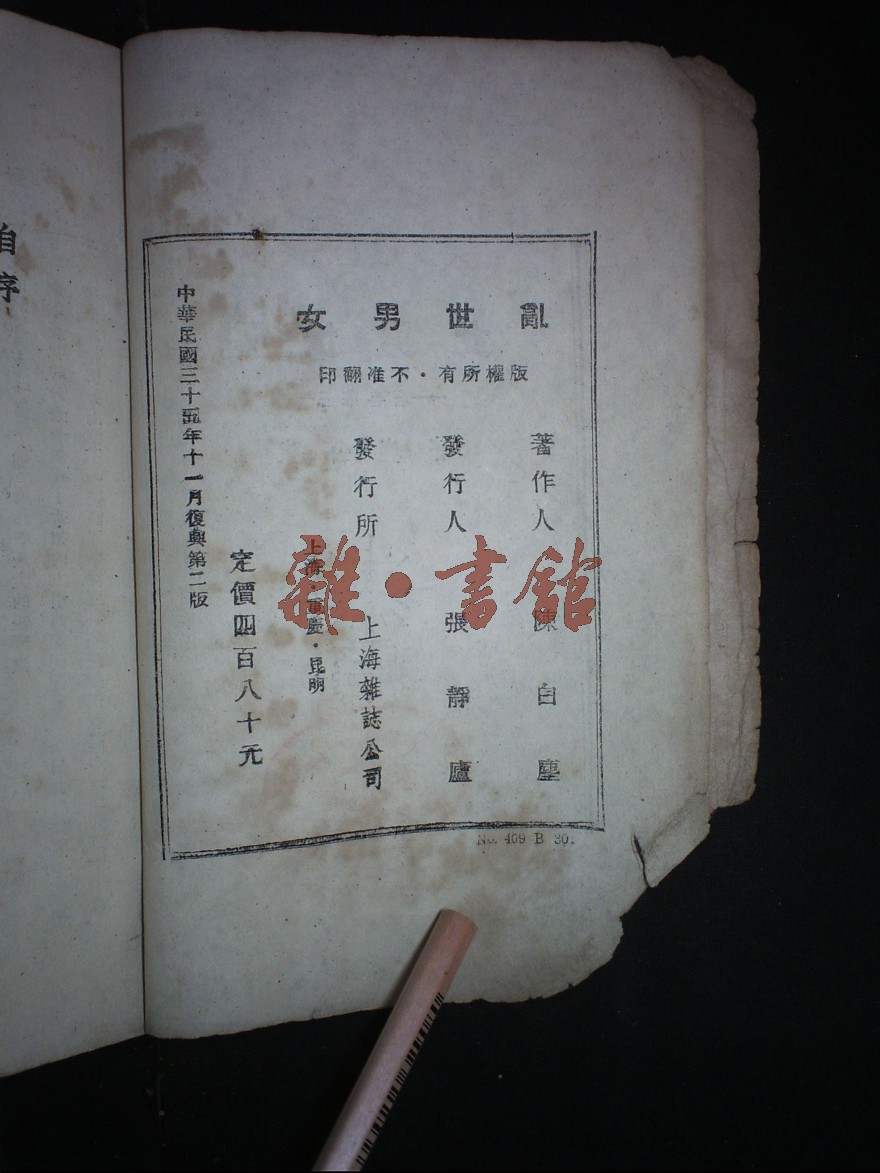 亂世男女
版權所有·不准翻印
著作人 陳白塵
發行人 張靜廬
發行所 上海雜誌公司
上海·重慶·昆明
定價四百八十元
中華民國三十五年十一月復興第二版
No. 409 B 30.
自序
雜·書館